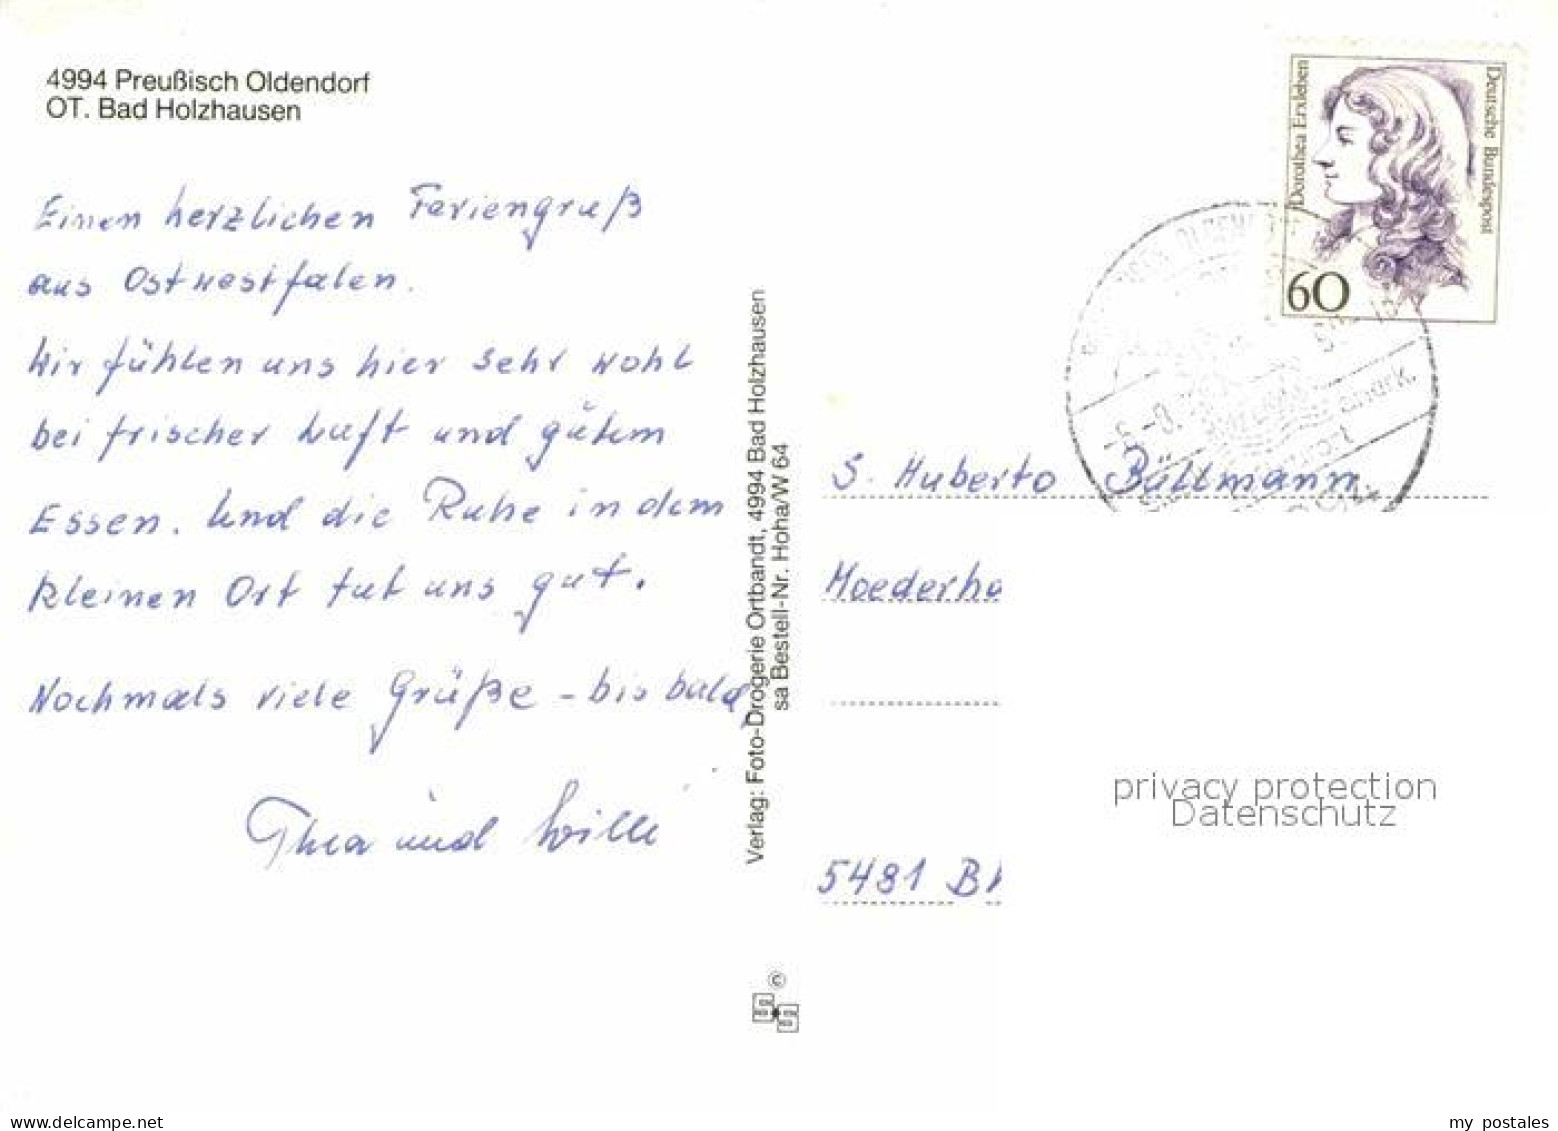 4994 Preußisch Oldendorf
OT. Bad Holzhausen
Einen herzlichen Feriengruß
aus Ostwestfalen.
Wir fühlen uns hier sehr wohl
bei frischer Luft und gutem
Essen. Und die Ruhe in dem
kleinen Ort tut uns gut.
Nochmals viele Grüße – bis bald,
Thea und Willi
Verlag: Foto-Drogerie Ortbandt, 4994 Bad Holzhausen
sa Bestell-Nr. Hoha/W 64
©
Dorothea Erxleben
Deutsche Bundespost
60
S. Huberto Büllmann
Moederho
5481
privacy protection
Datenschutz
www.delcampe.net
my_postales